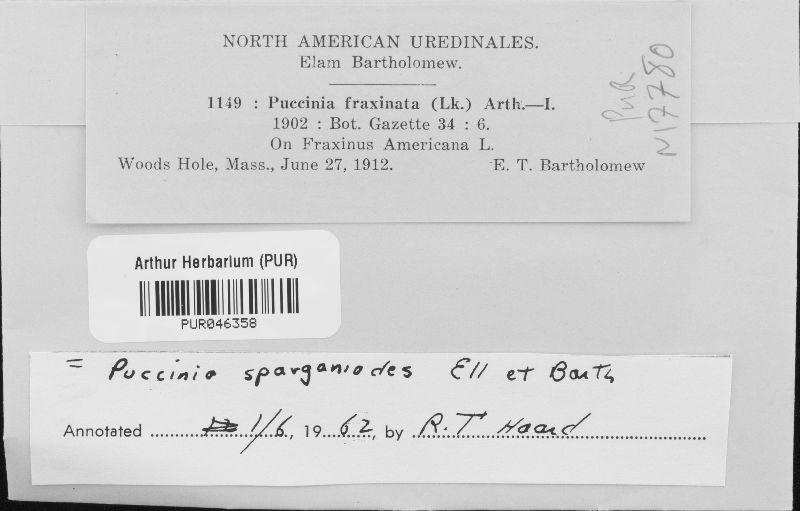 NORTH AMERICAN UREDINALES.
Elam Bartholomew.
1149 : Puccinia fraxinata (Lk.) Arth.—I.
1902 : Bot. Gazette 34 : 6.
On Fraxinus Americana L.
Woods Hole, Mass., June 27, 1912. E. T. Bartholomew
PUR
N17780
Arthur Herbarium (PUR)
PUR046358
= Puccinia sparganiodes Ell et Barth
Annotated 1/6, 1962, by R. T Haard